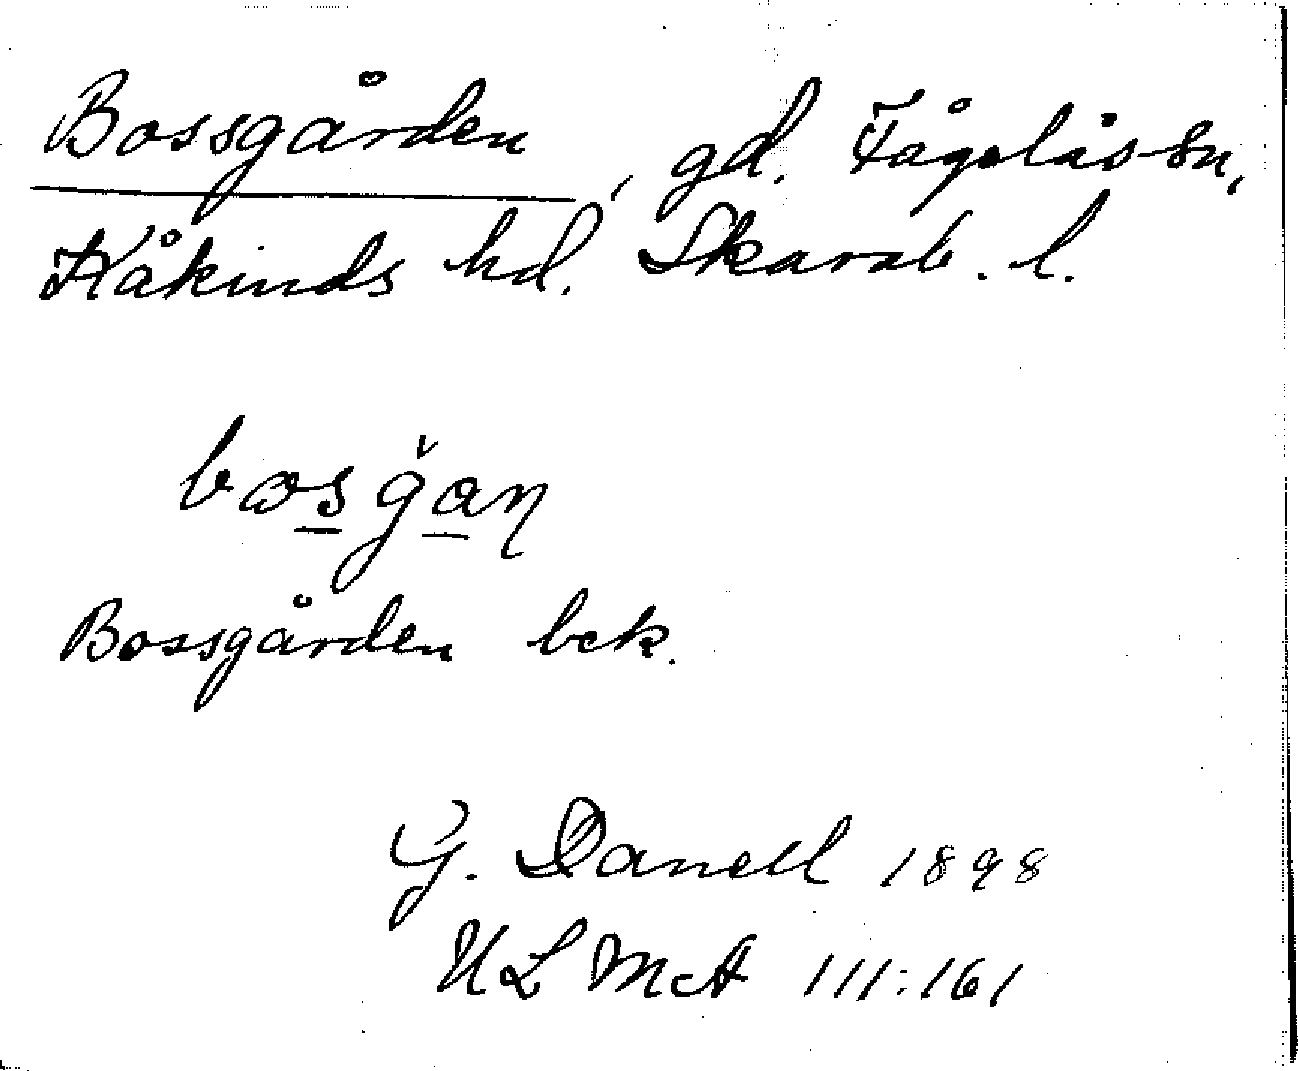 Bossgården, gd. Fågelås sn,
Kåkinds hd. Skarab. l.
Bossgården bck.
G. Danell 1898
ULMcA 111:161